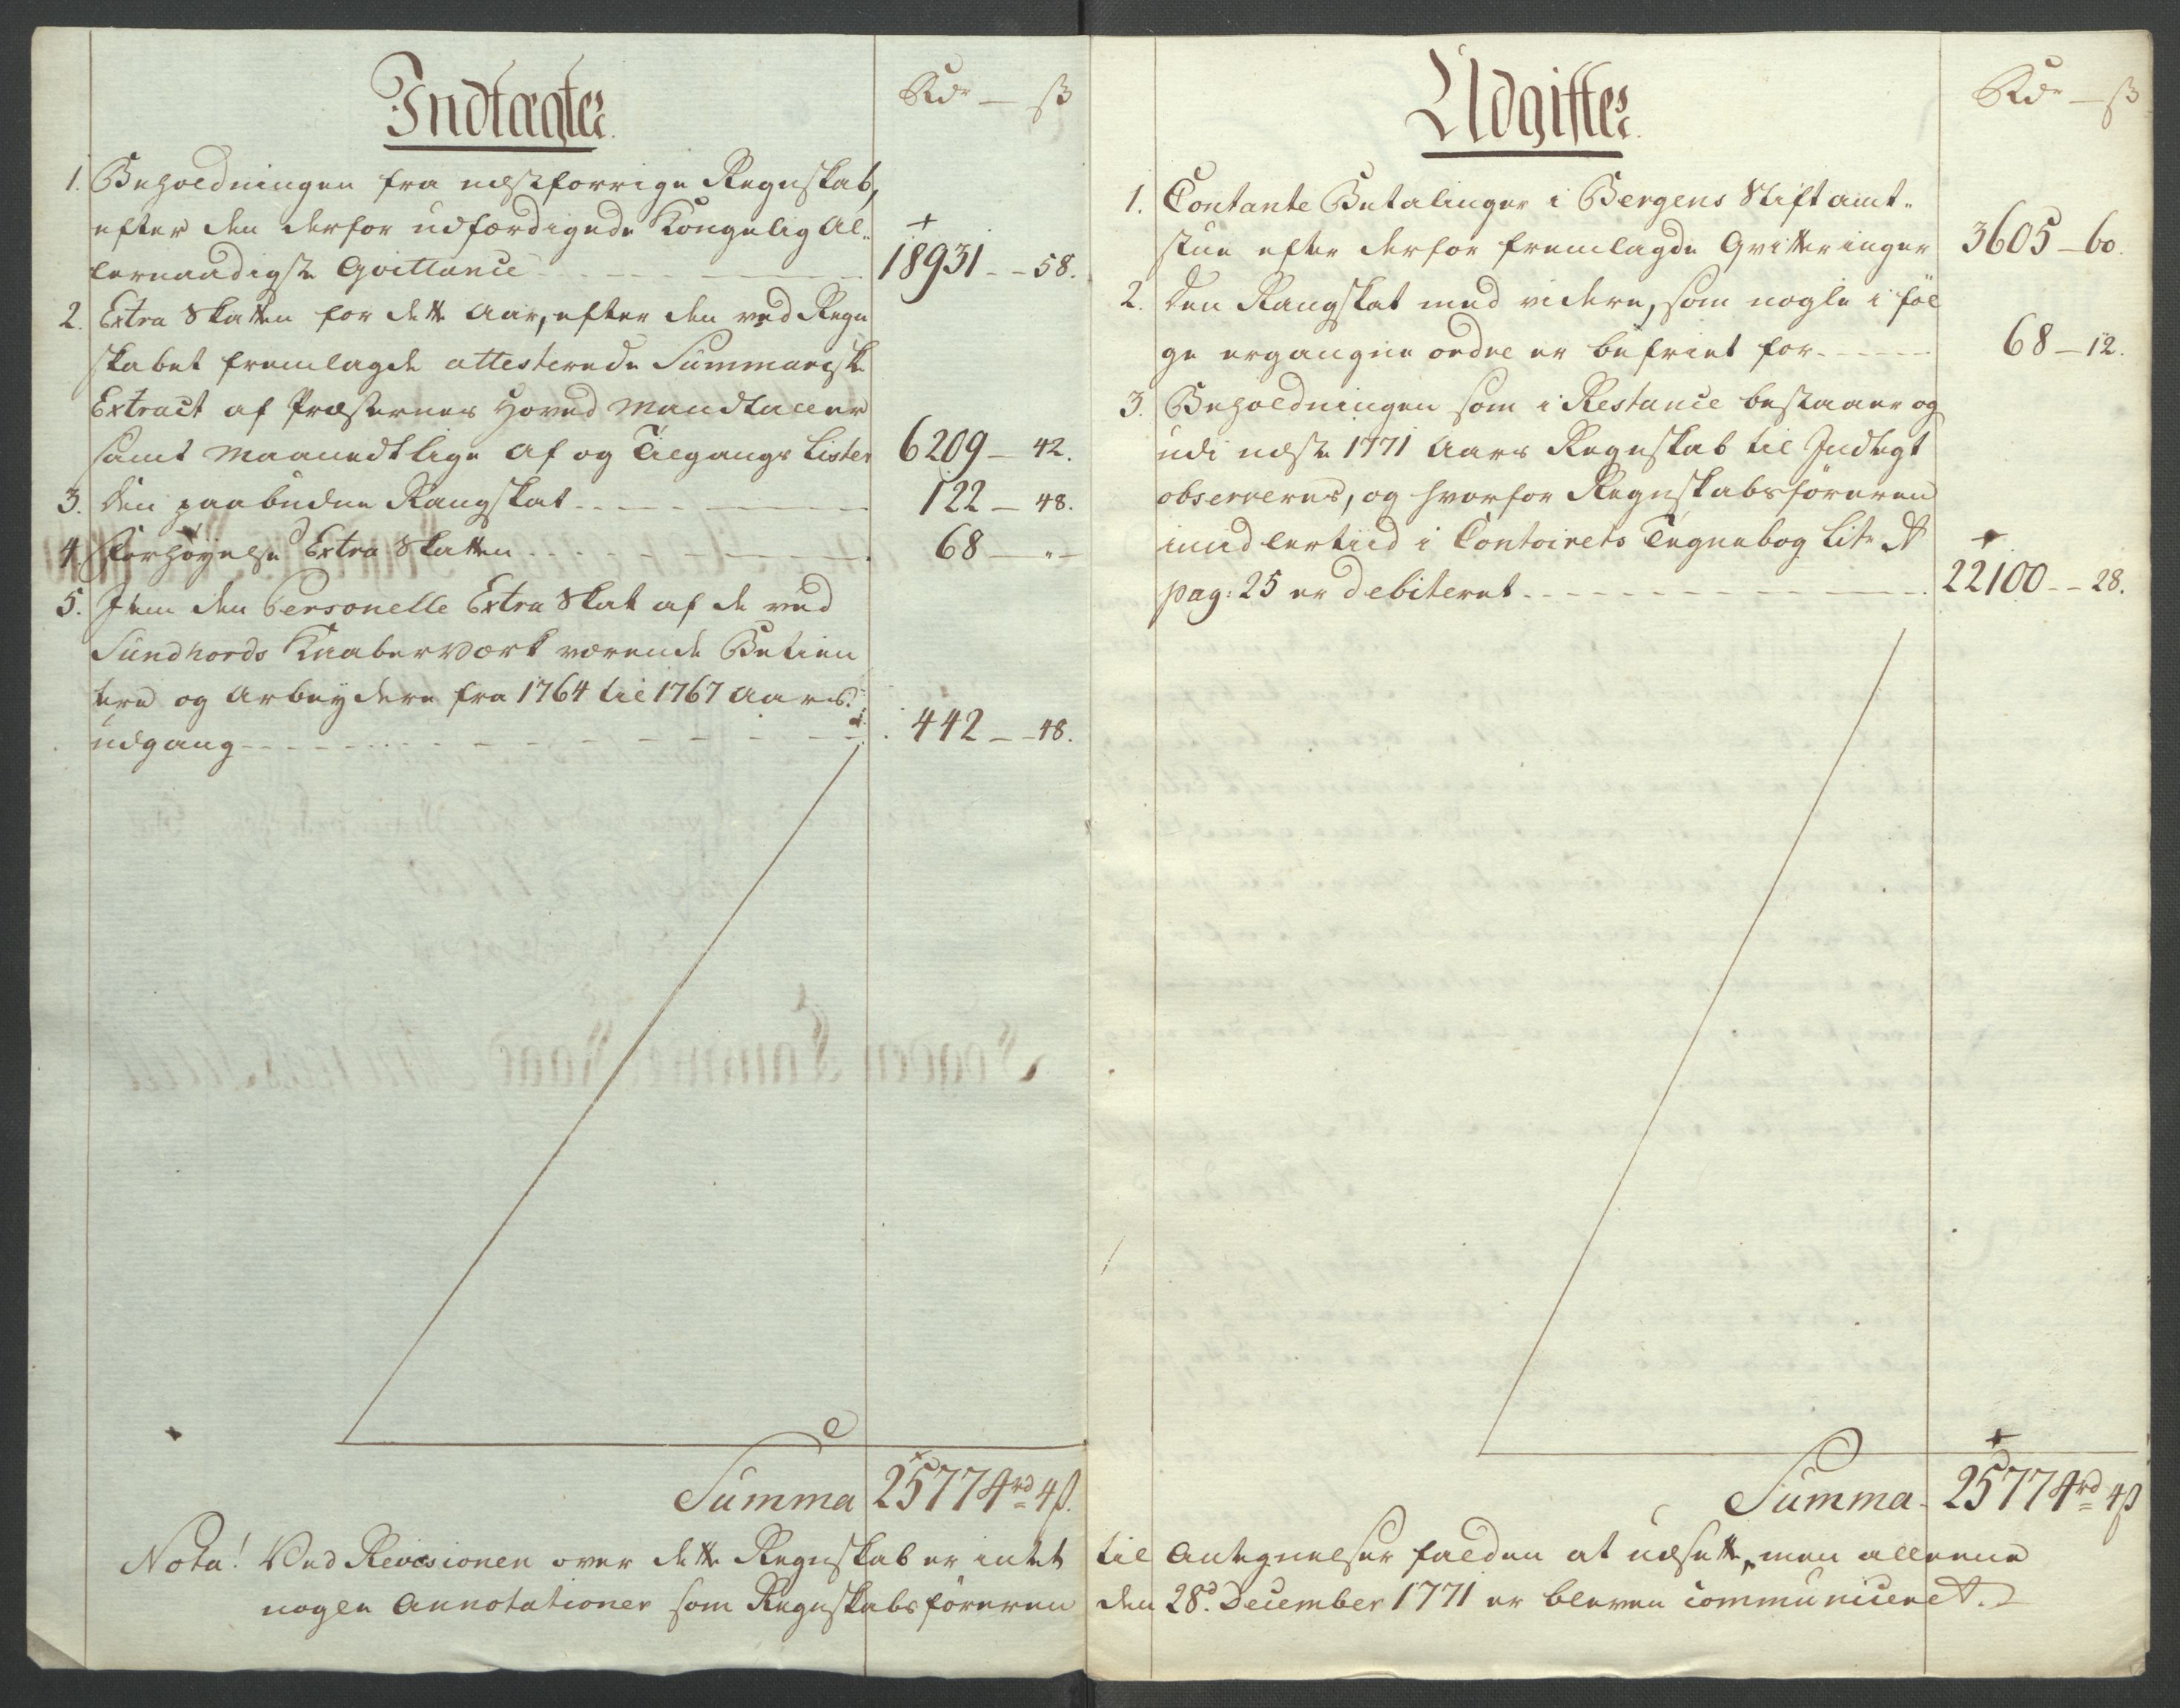 Indtægter.
Rdr — ß
1. Beholdningen fra næstforrige Regnskab,
efter den derfor udfærdigede Kongelig Al„
lernaadigste Qvittance 18931 - 58.
2. Extra Skatten for dette Aar, efter den ved Regn
skabet fremlagde attesterede Summariske
Extract af Præsternes Hoved Mandtaller
samt Maanedtlige Af og Tilgangs Lister 6209 - 42.
3. Den paabudne Rangskat 122 - 48.
4. Forhøyelse Extra Skatten 68 - „ -
5. Item den Personelle Extra Skat af de ved
Sundhords Kaaberværk værende Betien
tere og Arbeydere fra 1764 til 1767 Aars
udgang 442 - 48.
Summa 25774 rd 4 ß.
Udgifter.
Rdr — ß
1. Contante Betalinger i Bergens Stiftamt„
stue efter derfor fremlagde Qvitteringer 3605 - 60.
2. Den Rangskat med videre, som nogle i føl
ge ergangne ordre er befriet for 68 - 12.
3. Beholdningen som i Restance bestaaer og
udi næste 1771 Aars Regnskab til Indtegt
observeres, og hvorfor Regnskabsføreren
imidlertiid i Contoirets Tegnebog Litr A
pag: 25 er debiteret 22100 - 28.
Summa 25774 rd 4 ß
Nota! Ved Revisionen over dette Regnskab er intet til Antegnelser falden at udsette, men alleene
nogle Annotationer som Regnskabsføreren den 28d. December 1771 er bleven communiceret.